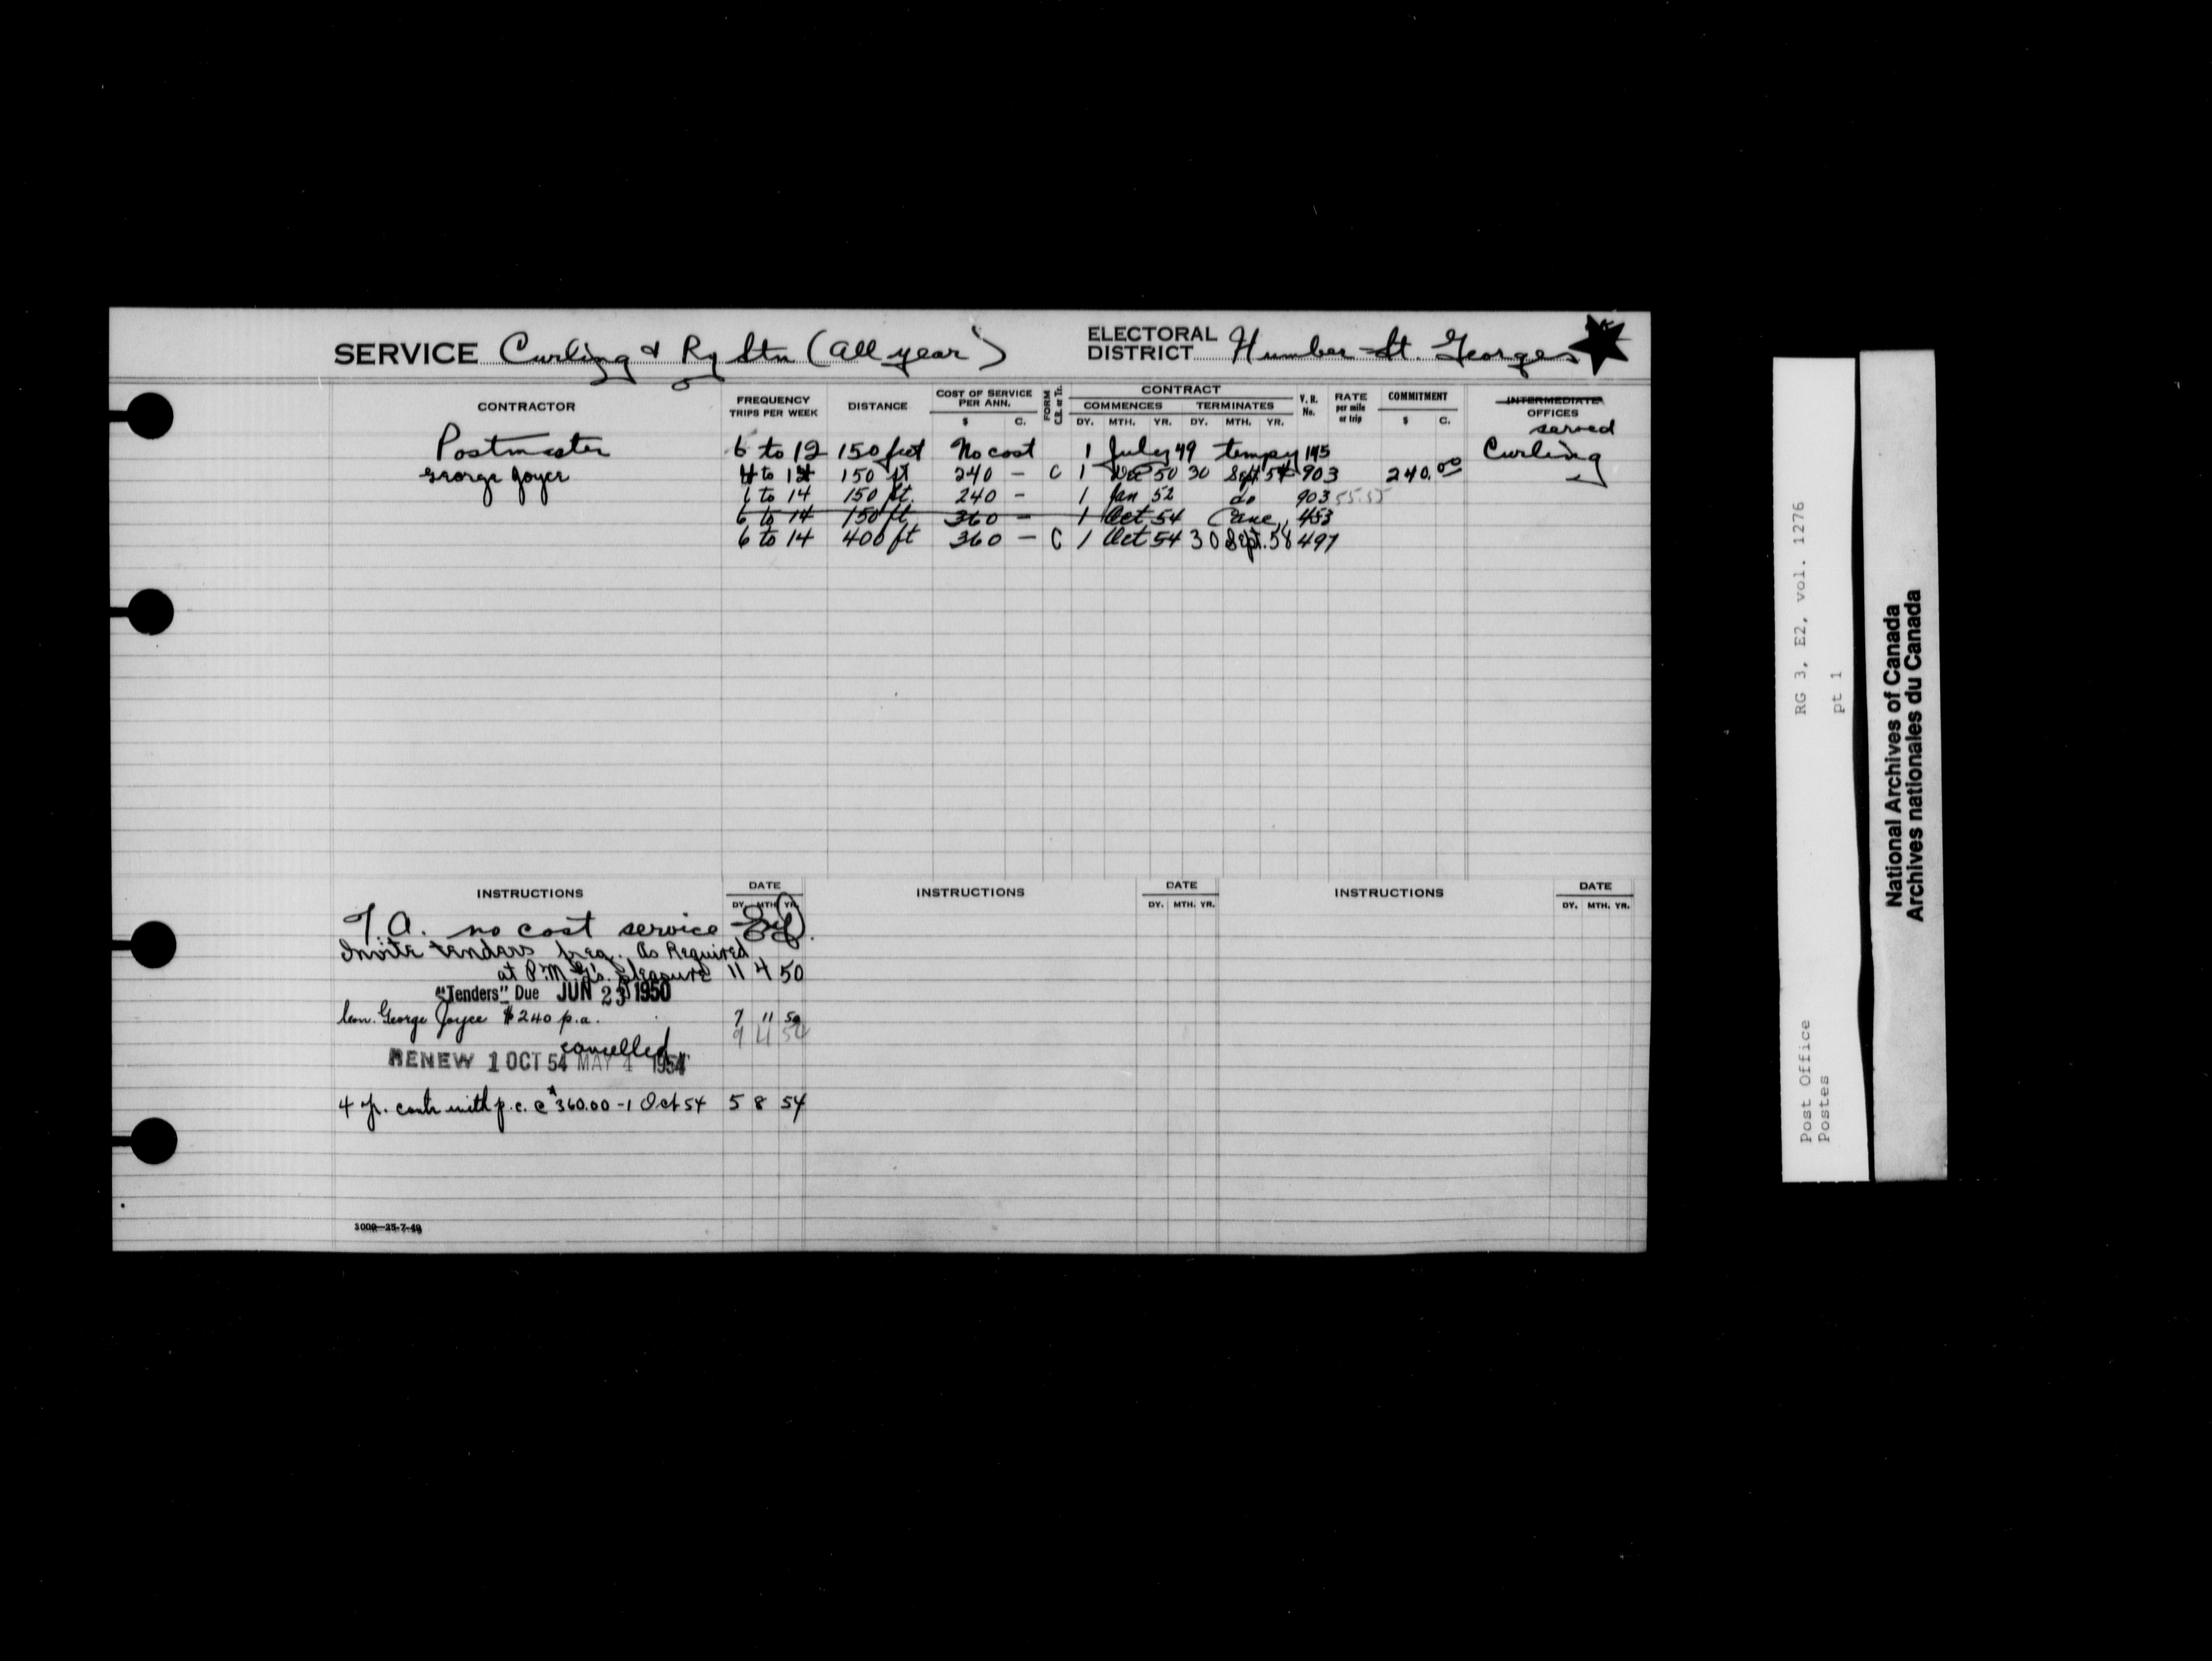 SERVICE Curling & Ry Stn (all year) ELECTORAL DISTRICT Humber St. Georges
CONTRACTOR FREQUENCY TRIPS PER WEEK DISTANCE COST OF SERVICE PER ANN. $ C. FORM C.B. or Tr. CONTRACT COMMENCES DY. MTH. YR. TERMINATES DY. MTH. YR. V.R. No. RATE per mile or trip COMMITMENT $ C. INTERMEDIATE OFFICES served
Postmaster 6 to 12 150 feet No cost 1 July 49 tempy 145 Curling
George Joyce 150 ft 240 – C 1 Dec 50 30 Sept 54 903 240.00
6 to 14 150 ft. 240 – 1 Jan 52 do 903 55.55
6 to 14 150 ft. 360 – 1 Oct 54 Canc. 453
6 to 14 400 ft 360 – C 1 Oct 54 30 Sept. 58 497
INSTRUCTIONS DATE DY. MTH. YR. INSTRUCTIONS DATE DY. MTH. YR. INSTRUCTIONS DATE DY. MTH. YR.
T.A. no cost service
Invite tenders freq. As Required
at P.M.G's. pleasure 11 4 50
"Tenders" Due JUN 23 1950
Con. George Joyce $240 p.a. 7 11 50
9 4 54
cancelled
RENEW 1 OCT 54 MAY 4 1954
4 yr. contr with p.c. @ $360.00 – 1 Oct 54 5 8 54
3000—25-7-49
RG 3, E2, vol. 1276
pt 1
Post Office
Postes
National Archives of Canada
Archives nationales du Canada